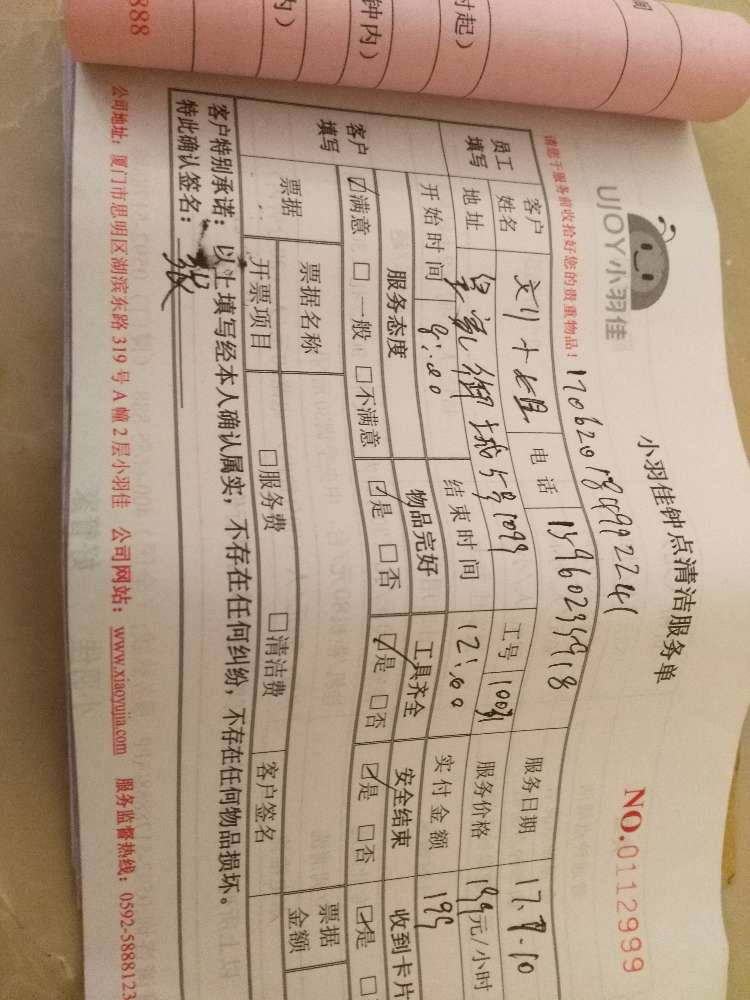 888
内）
钟内）
时起）
间
UJOY小羽佳
小羽佳钟点清洁服务单
NO.0112999
请您于服务前收拾好您的贵重物品！
员工填写
客户姓名
电话
服务日期 17.
地址
工号
服务价格 199元/小时
开始时间 9:00
结束时间 12:00
实付金额 199
客户填写
服务态度
物品完好
工具齐全
安全结束
收到卡片
☑满意 □一般 □不满意
☑是 □否
☑是 □否
☑是 □否
☑是 □
票据
票据名称
票据金额
开票项目
□服务费
□清洁费
客户签名
客户特别承诺：以上填写经本人确认属实，不存在任何纠纷，不存在任何物品损坏。
特此确认签名：张
公司地址：厦门市思明区湖滨东路 319 号 A 幢 2 层小羽佳 公司网站：www.xiaoyujia.com 服务监督热线：0592-5888123